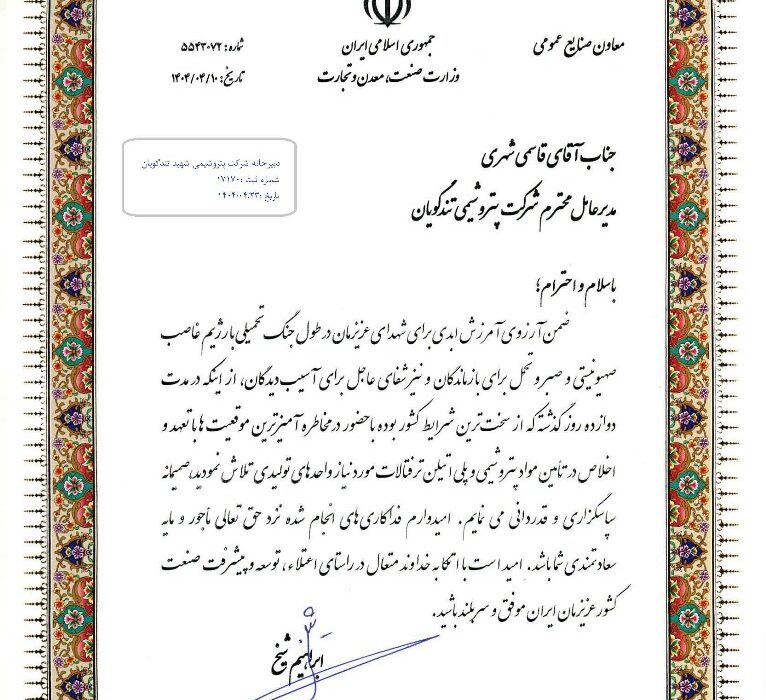 معاون صنایع عمومی
جمهوری اسلامی ایران
وزارت صنعت، معدن و تجارت
شماره: ۵۵۴۳۰۷۲
تاریخ: ۱۴۰۴/۰۴/۱۰
دبیرخانه شرکت پتروشیمی شهید تندگویان
شماره ثبت: ۱۷۱۷۰
تاریخ: ۱۴۰۴.۰۴.۲۳
جناب آقای قاسمی شهری
مدیرعامل محترم شرکت پتروشیمی تندگویان
باسلام و احترام؛
ضمن آرزوی آمرزش ابدی برای شهدای عزیزمان در طول جنگ تحمیلی با رژیم غاصب
صهیونیستی و صبر و تحمل برای بازماندگان و نیز شفای عاجل برای آسیب دیدگان، از اینکه در مدت
دوازده روز گذشته که از سخت‌ترین شرایط کشور بوده با حضور در مخاطره آمیزترین موقعیت ها با تعهد و
اخلاص در تأمین مواد پتروشیمی و پلی اتیلن ترفتالات مورد نیاز واحدهای تولیدی تلاش نمودید، صمیمانه
سپاسگزاری و قدردانی می نمایم. امیدوارم فداکاری های انجام شده نزد حق تعالی مأجور و مایه
سعادتمندی شما باشد. امید است با اتکا به خداوند متعال در راستای اعتلاء، توسعه و پیشرفت صنعت
کشور عزیزمان ایران موفق و سربلند باشید.
ابراهیم شیخ